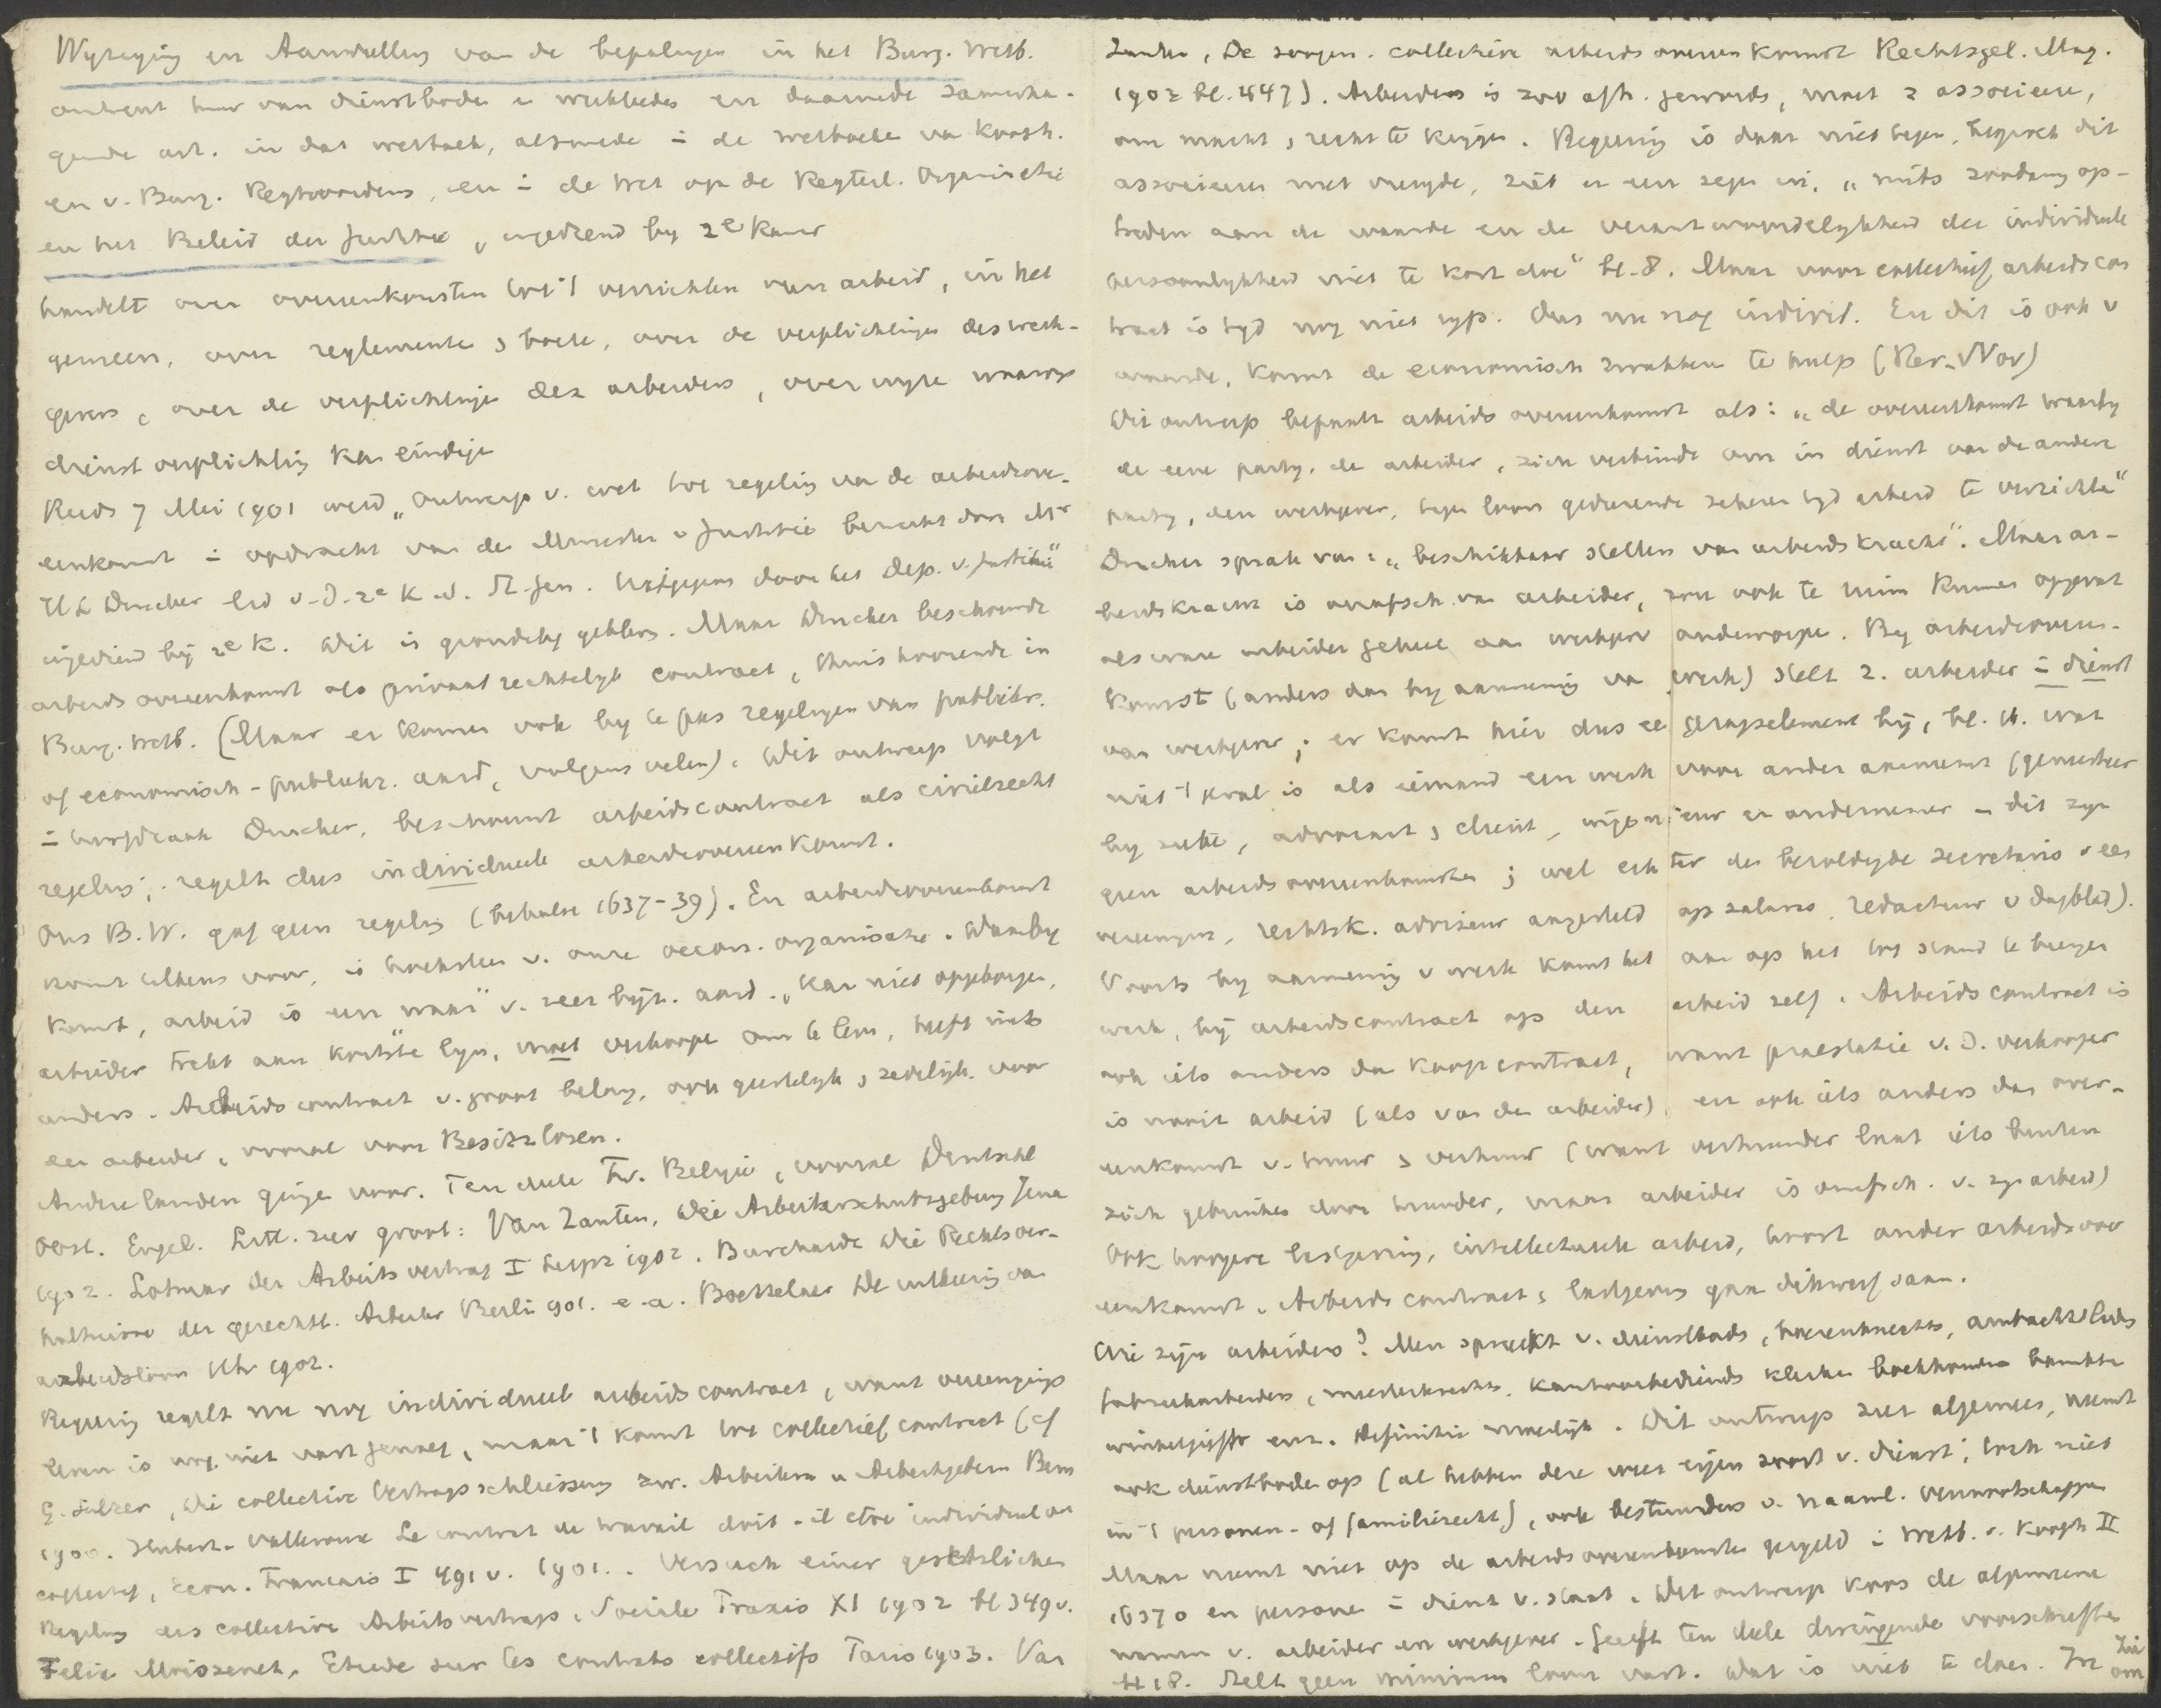 Wyziging en Aanvulling van de bepalingen in het Burg. Wetb.
omtrent huur van dienstboden en werklieden en daarmede samenhan-
gende art. in dat wetboek, alsmede in de wetboeken van Kooph.
en v. Burg. Regtsvordering, en in de Wet op de Regterl. Organisatie
en het Beleid der Justitie, ingediend by 2e Kamer
handelt over overeenkomsten tot 't verrichten van arbeid, in het
gemeen, over reglementen & boete, over de verplichtingen des werk-
gevers, over de verplichtingen des arbeiders, over wyze waarop
dienstverplichting kan eindigen
Reeds 7 Mei 1901 werd „Ontwerp v. wet tot regeling van de arbeidsove-
eenkomst in opdracht van den Minister v Justitie bewerkt door Mr
H L Drucker lid v. d. 2e K. d. St. Gen. Uitgegeven door het Dep. v. Justitie"
ingediend bij 2e K. Dit is grondslag gebleven. Maar Drucker beschouwde
arbeidsovereenkomst als privaatrechtelyk contract, thuis hoorende in
Burg. Wetb. (Maar er komen ook by te pas regelingen van publiekr.
of economisch-publiekr. aard, volgens velen). Dit ontwerp volgt
in hoofdzaak Drucker, beschouwt arbeidscontract als civielrecht
regeling; regelt dus individueele arbeidsovereenkomst.
Ons B.W. gaf geen regeling (behalve 1637-39). En arbeidsovereenkomst
komt telkens voor, is hoeksteen v. onze oecon. organisatie. Daarby
komt, arbeid is een waar" v. zeer byz. aard. „Kan niet opgeborgen,
arbeider trekt aan kortste lyn, moet verkoopen om te leven, heeft niets
anders. Arbeidscontract v. groot belang, ook geestelyk & zedelyk voor
den arbeider, vooral voor Besitzlosen.
Andere landen gingen voor. Ten deele Fr. Belgie, vooral Deutschl
Oost. Engel. Litt. zeer groot: Van Zanten, Die Arbeiterschutzgebung Jena
1902. Lotmar der Arbeitsvertrag I Leipz 1902. Burchardt Die Rechtsver-
hältnisse der gewerbl. Arbeiter Berlin 901. e.a. Boetzelaer De uitkeering van
arbeidsloon Utr 1902.
Regering regelt nu nog individueel arbeidscontract, want vereenigings
leven is nog niet vast genoeg, maar 't komt tot collectief contract (cf
G. Sulzer, Die collective Vertragsschliessung zw. Arbeitern u Arbeitgebern Bern
1900. Hubert-Valleroux Le contrat de travail doit-il être individuel ou
collectif, Econ. Francais I 491 v. 1901. Versuch einer gesetzlichen
Regelung des collectiven Arbeitsvertrags. Sociale Praxis XI 1902 bl 349 v.
Felix Moissenet, Etude sur les contrats collectifs Paris 1903. Van
Zanten, De zoogen. collectieve arbeidsovereenkomst Rechtsgel. Mag.
1902 bl. 447). Arbeiders is zoo afh. geworden, moet z associeeren,
om macht & recht te krijgen. Regering is daar niet tegen, begroet dit
associeeren met vreugde, ziet er een zegen in, „mits zoodanig op-
treden aan de waarde en de verantwoordelykheid der individueele
persoonlykheid niet te kort doe" bl. 8. Maar voor collectief arbeidscon
tract is tyd nog niet ryp. Dus nu nog individ. En dit is ook v
waarde, komt de economisch zwakken te hulp (Rer. Nov)
Dit ontwerp bepaalt arbeidsovereenkomst als: „de overeenkomst waarby
de eene party, de arbeider, zich verbindt om in dienst van de andere
party, den werkgever, tegen loon gedurende zekeren tyd arbeid te verrichten"
Drucker sprak van: „beschikbaar stellen van arbeidskracht". Maar ar-
beidskracht is onafsch. van arbeider, zou ook te ruim kunnen opgevat
als ware arbeider geheel aan werkgever onderworpen. By arbeidsovereen-
komst (anders dan by aanneming van werk) stelt z. arbeider in dienst
van werkgever; er komt hier dus een gezagselement bij, bl. 16. wat
niet 't geval is als iemand een werk voor ander aanneemt (geneesheer
by zieke, advocaat & client, ingenieur en ondernemer – dit zyn
geen arbeidsovereenkomsten; wel echter de bezoldigde secretaris v een
vereeniging, rechtsk. adviseur aangesteld op salaris, redacteur v dagblad).
Voorts by aanneming v werk komt het aan op het tot stand te brengen
werk, bij arbeidscontract op den arbeid zelf. Arbeidscontract is
ook iets anders dan koopcontract, want praestatie v. d. verkooper
is nooit arbeid (als van den arbeider), en ook iets anders dan over-
eenkomst v. huur & verhuur (want verhuurder laat iets buiten
zich gebruiken door huurder, maar arbeider is onafsch. v. zyn arbeid)
Ook hoogere lastgeving, intellectueele arbeid, hoort onder arbeidsover
eenkomst. Arbeidscontract & lastgeving gaan dikwerf saam.
Wie zijn arbeiders? Men spreekt v. dienstboden, boerenknechts, ambachtslieden
fabrieksarbeiders, meesterknechts, kantoorbedienden klerken boekhouders beambten
winkeljuffr enz. Definitie moeilijk. Dit ontwerp zeer algemeen, neemt
ook dienstboden op (al hebben deze weer eigen soort v. dienst; toch niet
in 't personen- of familierecht), ook bestuurders v. naaml. vennootschappen
Maar neemt niet op de arbeidsovereenkomsten geregeld in Wetb. v. Kooph II
1637 o en personen in dienst v. staat. Dit ontwerp koos de algemeene
namen v. arbeider en werkgever. Geeft ten deele dwingende voorschriften
bl 18. Stelt geen minimum loon vast. Dat is niet te doen. In
Zie
om